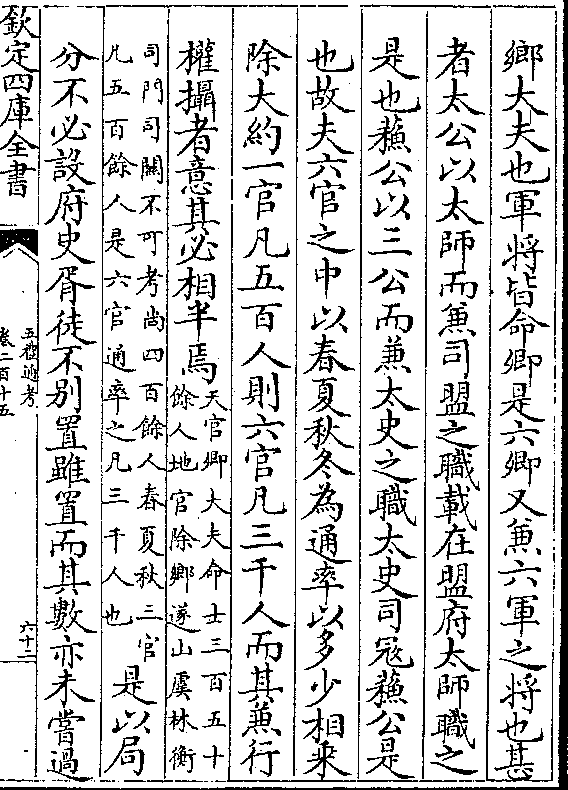 鄉大夫也軍將皆命卿是六卿又兼六軍之將也甚
者太公以太師而兼司盟之職載在盟府太師職之
是也蘓公以三公而兼太史之職太史司冦蘓公是
也故夫六官之中以春夏秋冬為通率以多少相乗
除大約一官凡五百人則六官凡三千人而其兼行
權攝者意其必相半焉天官卿大夫命士三百五十
餘人地官除鄉遂山虞林衡
司門司關不可考尚四百餘人春夏秋三官
凡五百餘人是六官通率之凡三千人也是以局
分不必設府史胥徒不别置雖置而其數亦未嘗過
欽定四庫全書
五禮通考
卷二百十五
六十二